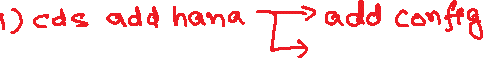 1) cds add hana → add config